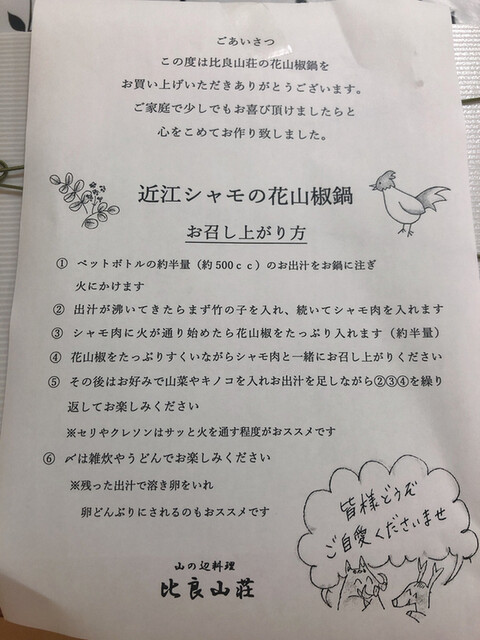 ごあいさつ
この度は比良山荘の花山椒鍋を
お買い上げいただきありがとうございます。
ご家庭で少しでもお喜び頂けましたらと
心をこめてお作り致しました。
近江シャモの花山椒鍋
お召し上がり方
① ペットボトルの約半量（約500cc）のお出汁をお鍋に注ぎ
火にかけます
② 出汁が沸いてきたらまず竹の子を入れ、続いてシャモ肉を入れます
③ シャモ肉に火が通り始めたら花山椒をたっぷり入れます（約半量）
④ 花山椒をたっぷりすくいながらシャモ肉と一緒にお召し上がりください
⑤ その後はお好みで山菜やキノコを入れお出汁を足しながら②③④を繰り
返してお楽しみください
※セリやクレソンはサッと火を通す程度がおススメです
⑥ 〆は雑炊やうどんでお楽しみください
※残った出汁で溶き卵をいれ
卵どんぶりにされるのもおススメです
皆様どうぞ
ご自愛くださいませ
山の辺料理
比良山荘